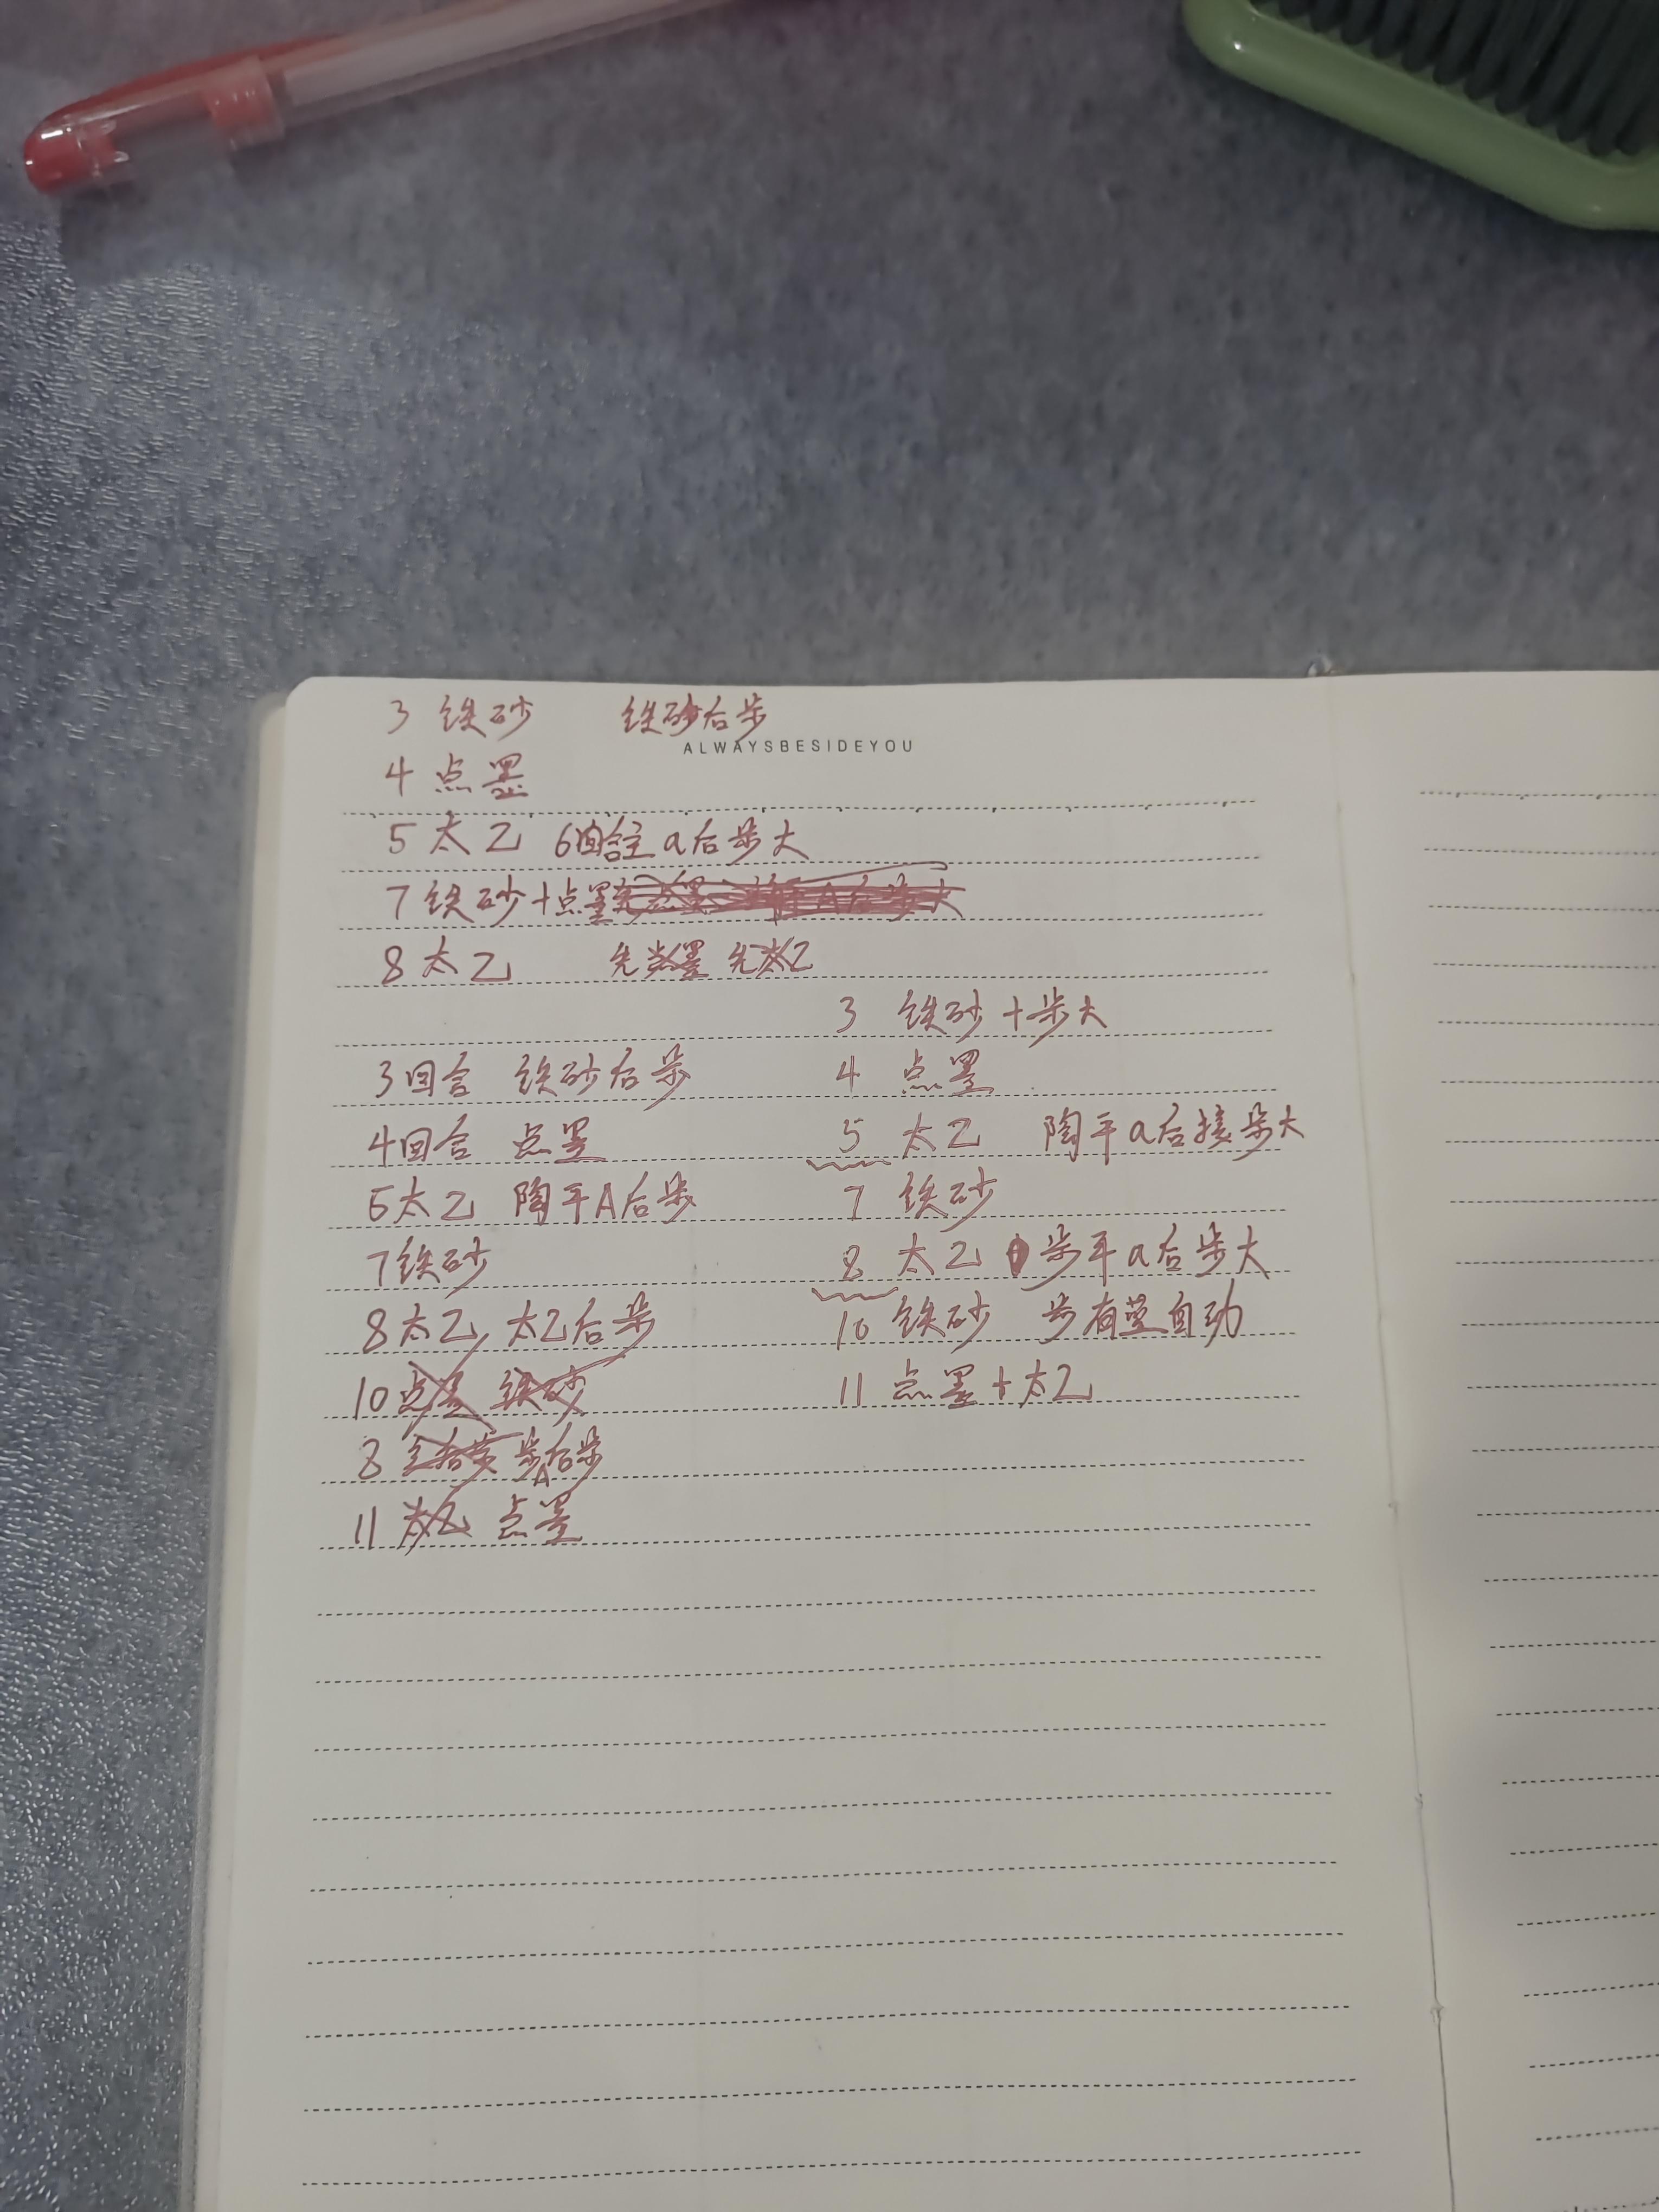 3 铁砂 铁砂后步
ALWAYSBESIDEYOU
4 点墨
5 太乙 6回合主a后步大
7 铁砂+点墨
8 太乙 先点墨 先太乙
3回合 铁砂后步
4回合 点墨
5太乙 陶平A后步
7铁砂
8太乙, 太乙后步
10点墨 铁砂
8 步A后步
11 太乙 点墨
3 铁砂+步大
4 点墨
5 太乙 陶平a后接步大
7 铁砂
8 太乙 步平a后步大
10 铁砂 步有蓝自动
11 点墨+太乙